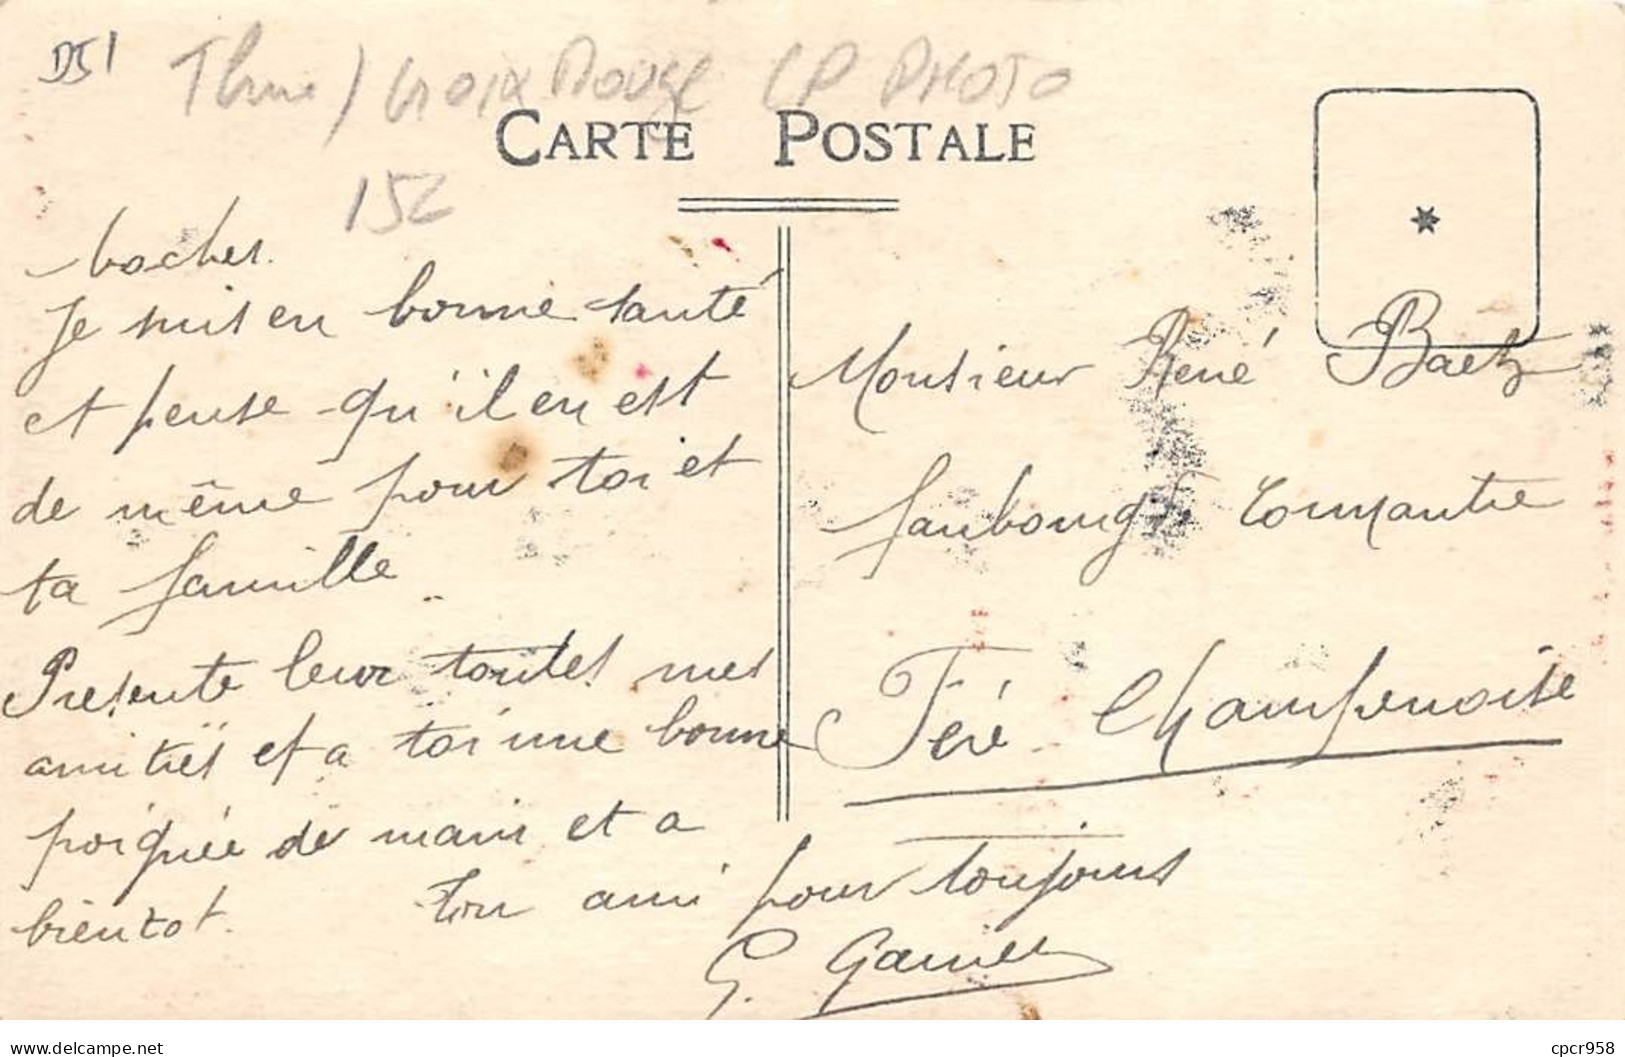 D51
Croix Rouge CP PHOTO
CARTE POSTALE
152
boches.
Je suis en bonne santé
et pense qu'il en est
de même pour toi et
ta famille
Presente leur toutes mes
amitiés et a toi une bonne
poignée de main et a
bientot.
Ton ami pour toujours
G. Garnier
Monsieur René Baetz
faubourg de Connantre
Fére Champenoise
delcampe.net
cpcr958